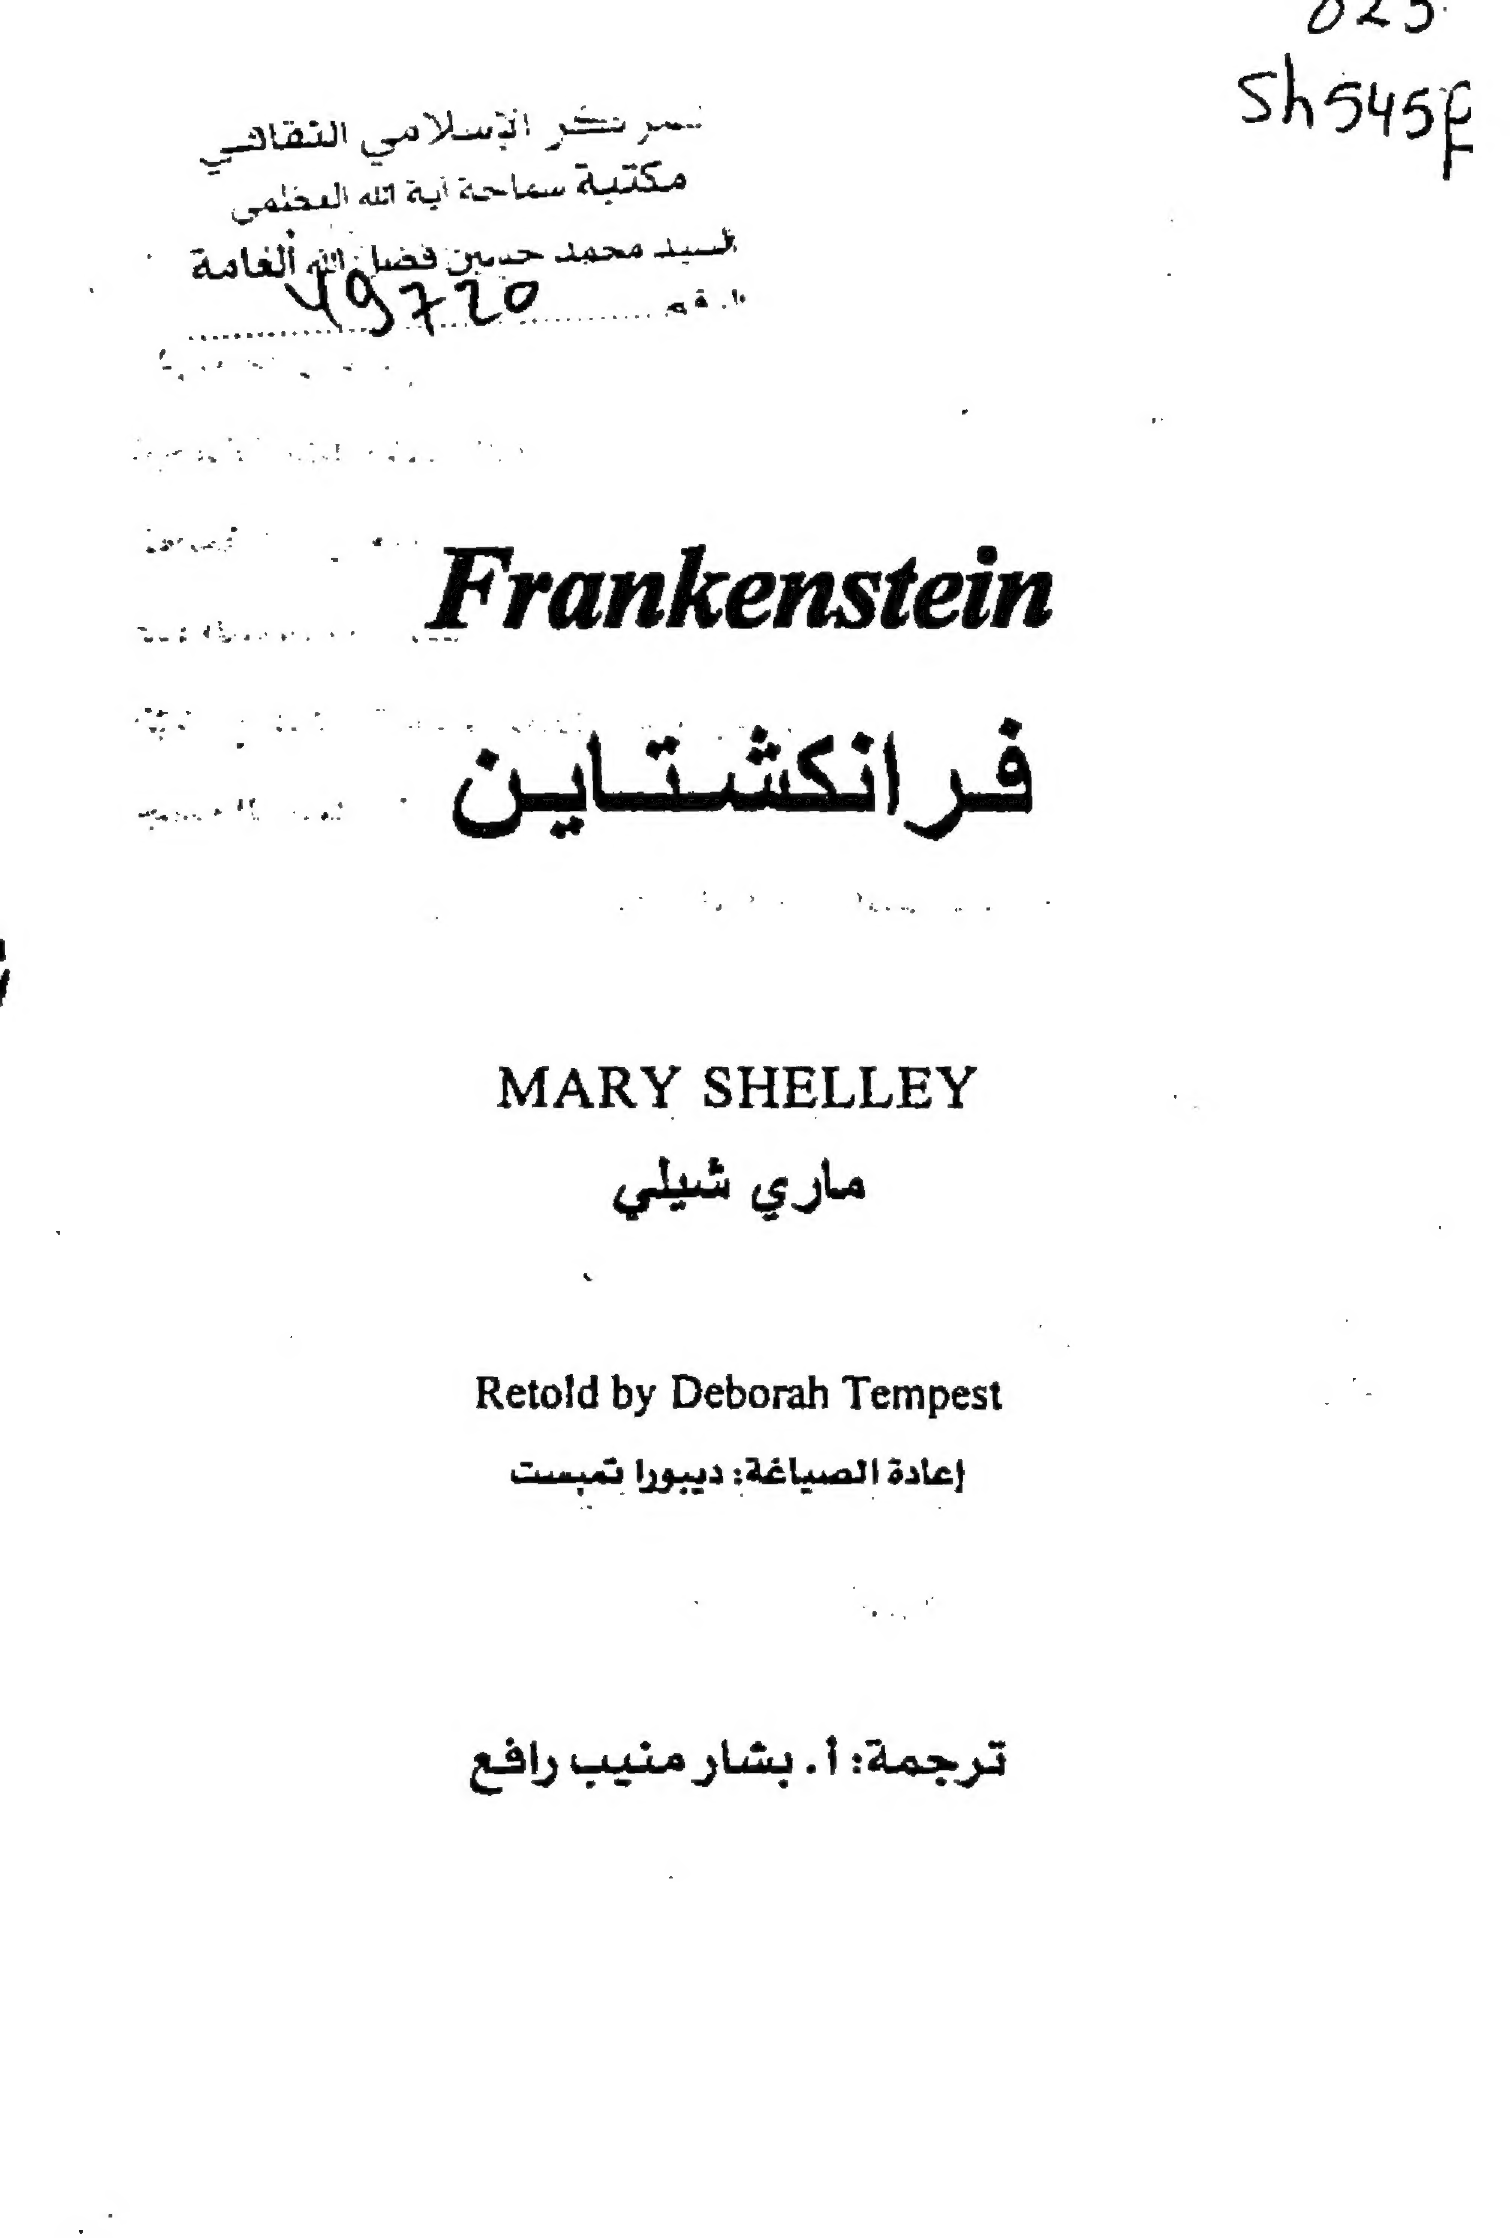 823
Sh545f
المركز الإسلامي الثقافي
مكتبة سماحة آية الله العظمى
السيد محمد حسين فضل الله العامة
الرقم 49720
Frankenstein
فرانكشتاين
MARY SHELLEY
ماري شيلي
Retold by Deborah Tempest
إعادة الصياغة: ديبورا تمبست
ترجمة: أ. بشار منيب رافع